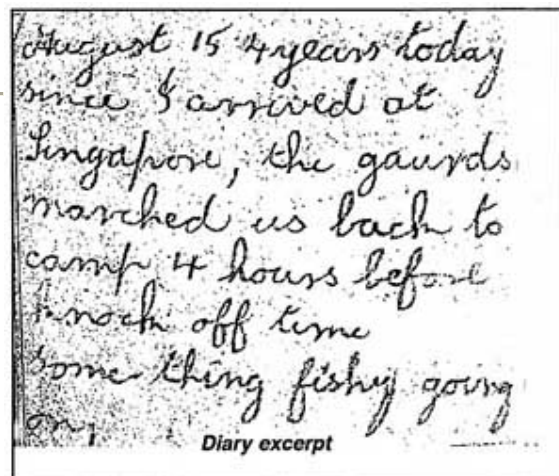 August 15 4 years today
since I arrived at
Singapore, the gaurds
marched us back to
camp 4 hours before
knock off time
Some thing fishy going
on,
Diary excerpt